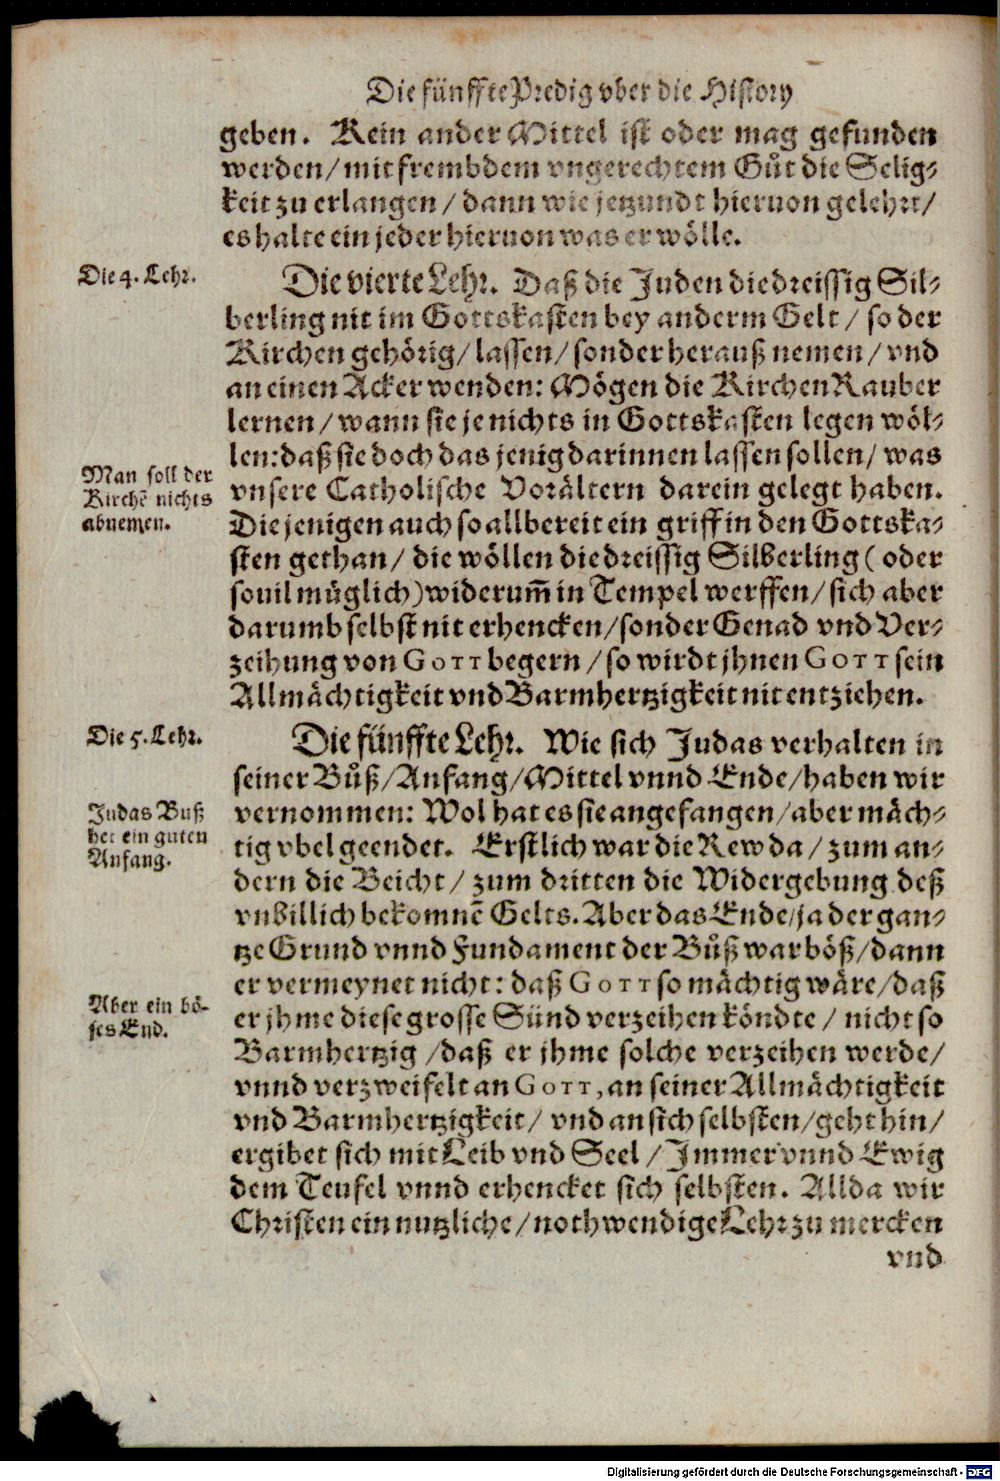 Die fünffte Predig vber die History
geben. Kein ander Mittel ist oder mag gefunden
werden/ mit frembdem vngerechtem Gůt die Selig-
keit zu erlangen/ dann wie jetzundt hieruon gelehrt/
es halte ein jeder hieruon was er wölle.
Die 4. Lehr.
Die vierte Lehr. Daß die Juden die dreissig Sil-
berling nit im Gottskasten bey anderm Gelt/ so der
Kirchen gehörig/ lassen/ sonder herauß nemen/ vnd
an einen Acker wenden: Mögen die Kirchen Rauber
lernen/ wann sie je nichts in Gottskasten legen wöl-
len: daß sie doch das jenig darinnen lassen sollen/ was
Man soll der
Kirchē nichts
abnemen.
vnsere Catholische Vorältern darein gelegt haben.
Die jenigen auch so allbereit ein griff in den Gottska-
sten gethan/ die wöllen die dreissig Silberling (oder
souil müglich) widerum̃ in Tempel werffen/ sich aber
darumb selbst nit erhencken/ sonder Genad vnd Ver-
zeihung von GOTT begern/ so wirdt jhnen GOTT sein
Allmächtigkeit vnd Barmhertzigkeit nit entziehen.
Die 5. Lehr.
Die fünffte Lehr. Wie sich Judas verhalten in
seiner Bůß/ Anfang/ Mittel vnnd Ende/ haben wir
Judas Buß
het ein guten
Anfang.
vernommen: Wol hat es sie angefangen/ aber mäch-
tig vbel geendet. Erstlich war die Rew da/ zum an-
dern die Beicht/ zum dritten die Widergebung deß
vnbillich bekomnē Gelts. Aber das Ende/ ja der gan-
tze Grund vnnd Fundament der Bůß war böß/ dann
er vermeynet nicht: daß GOTT so mächtig wäre/ daß
Aber ein bö-
ses End.
er jhme diese grosse Sünd verzeihen köndte/ nicht so
Barmhertzig/ daß er jhme solche verzeihen werde/
vnnd verzweifelt an GOTT, an seiner Allmächtigkeit
vnd Barmhertzigkeit/ vnd an sich selbsten/ geht hin/
ergibet sich mit Leib vnd Seel/ Immer vnnd Ewig
dem Teufel vnnd erhencket sich selbsten. Allda wir
Christen ein nutzliche/ nothwendige Lehr zu mercken
vnd
Digitalisierung gefördert durch die Deutsche Forschungsgemeinschaft - DFG